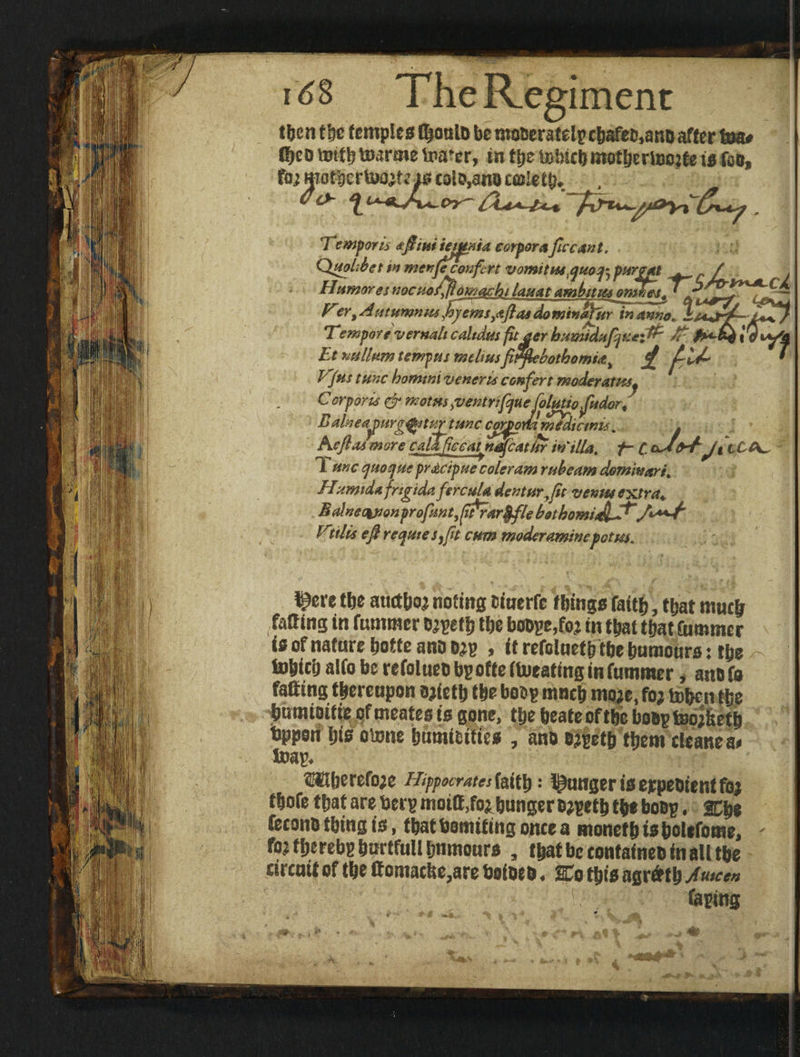 168 The Regiment
then the temples should be moderately chafed, and after wa-
shed with warme water, in the which motherworte is sod,
for motherworte is cold, and cooleth.
Temporis æstiui ieiunia corpora siccant.
Quolibet in mense confert vomitus, quoq; purgat
Humores nocuos, stomachi lauat ambitus omnes.
Ver, Autumnus, hyems, æstas dominatur in anno.
Tempore vernali calidus fit aer humidusque:
Et nullum tempus melius sit flebothomiæ,
Vsus tunc homini veneris confert moderatus,
Corporis & motus, ventrisque solutio, sudor,
Balnea, purgentur tunc corpora medicinis.
Aestas more calet siccat, noscatur in illa.
Tunc quoque præcipue coleram rubeam dominari.
Humida frigida fercula dentur, sit venus extra,
Balnea non prosunt, sit rar flebothomi
Vtilis est requies, sit cum moderamine potus.
Here the aucthor noting diuerse things saith, that much
fasting in summer dryeth the bodye, for in that that summer
is of nature hotte and dry , it resolueth the humours: the
which also be resolued by ofte sweating in summer, and so
fasting thereupon drieth the body much more, for when the
humiditie of meates is gone, the heate of the body worketh
vppon his owne humidities , and dryeth them cleane a-
way.
Wherefore Hippocrates saith: Hunger is expedient for
those that are very moist, for hunger dryeth the body. The
second thing is, that vomiting once a moneth is holesome,
for thereby hurtfull hnmours , that be contained in all the
circuit of the stomacke, are voided. To this agréeth Auicen
saying